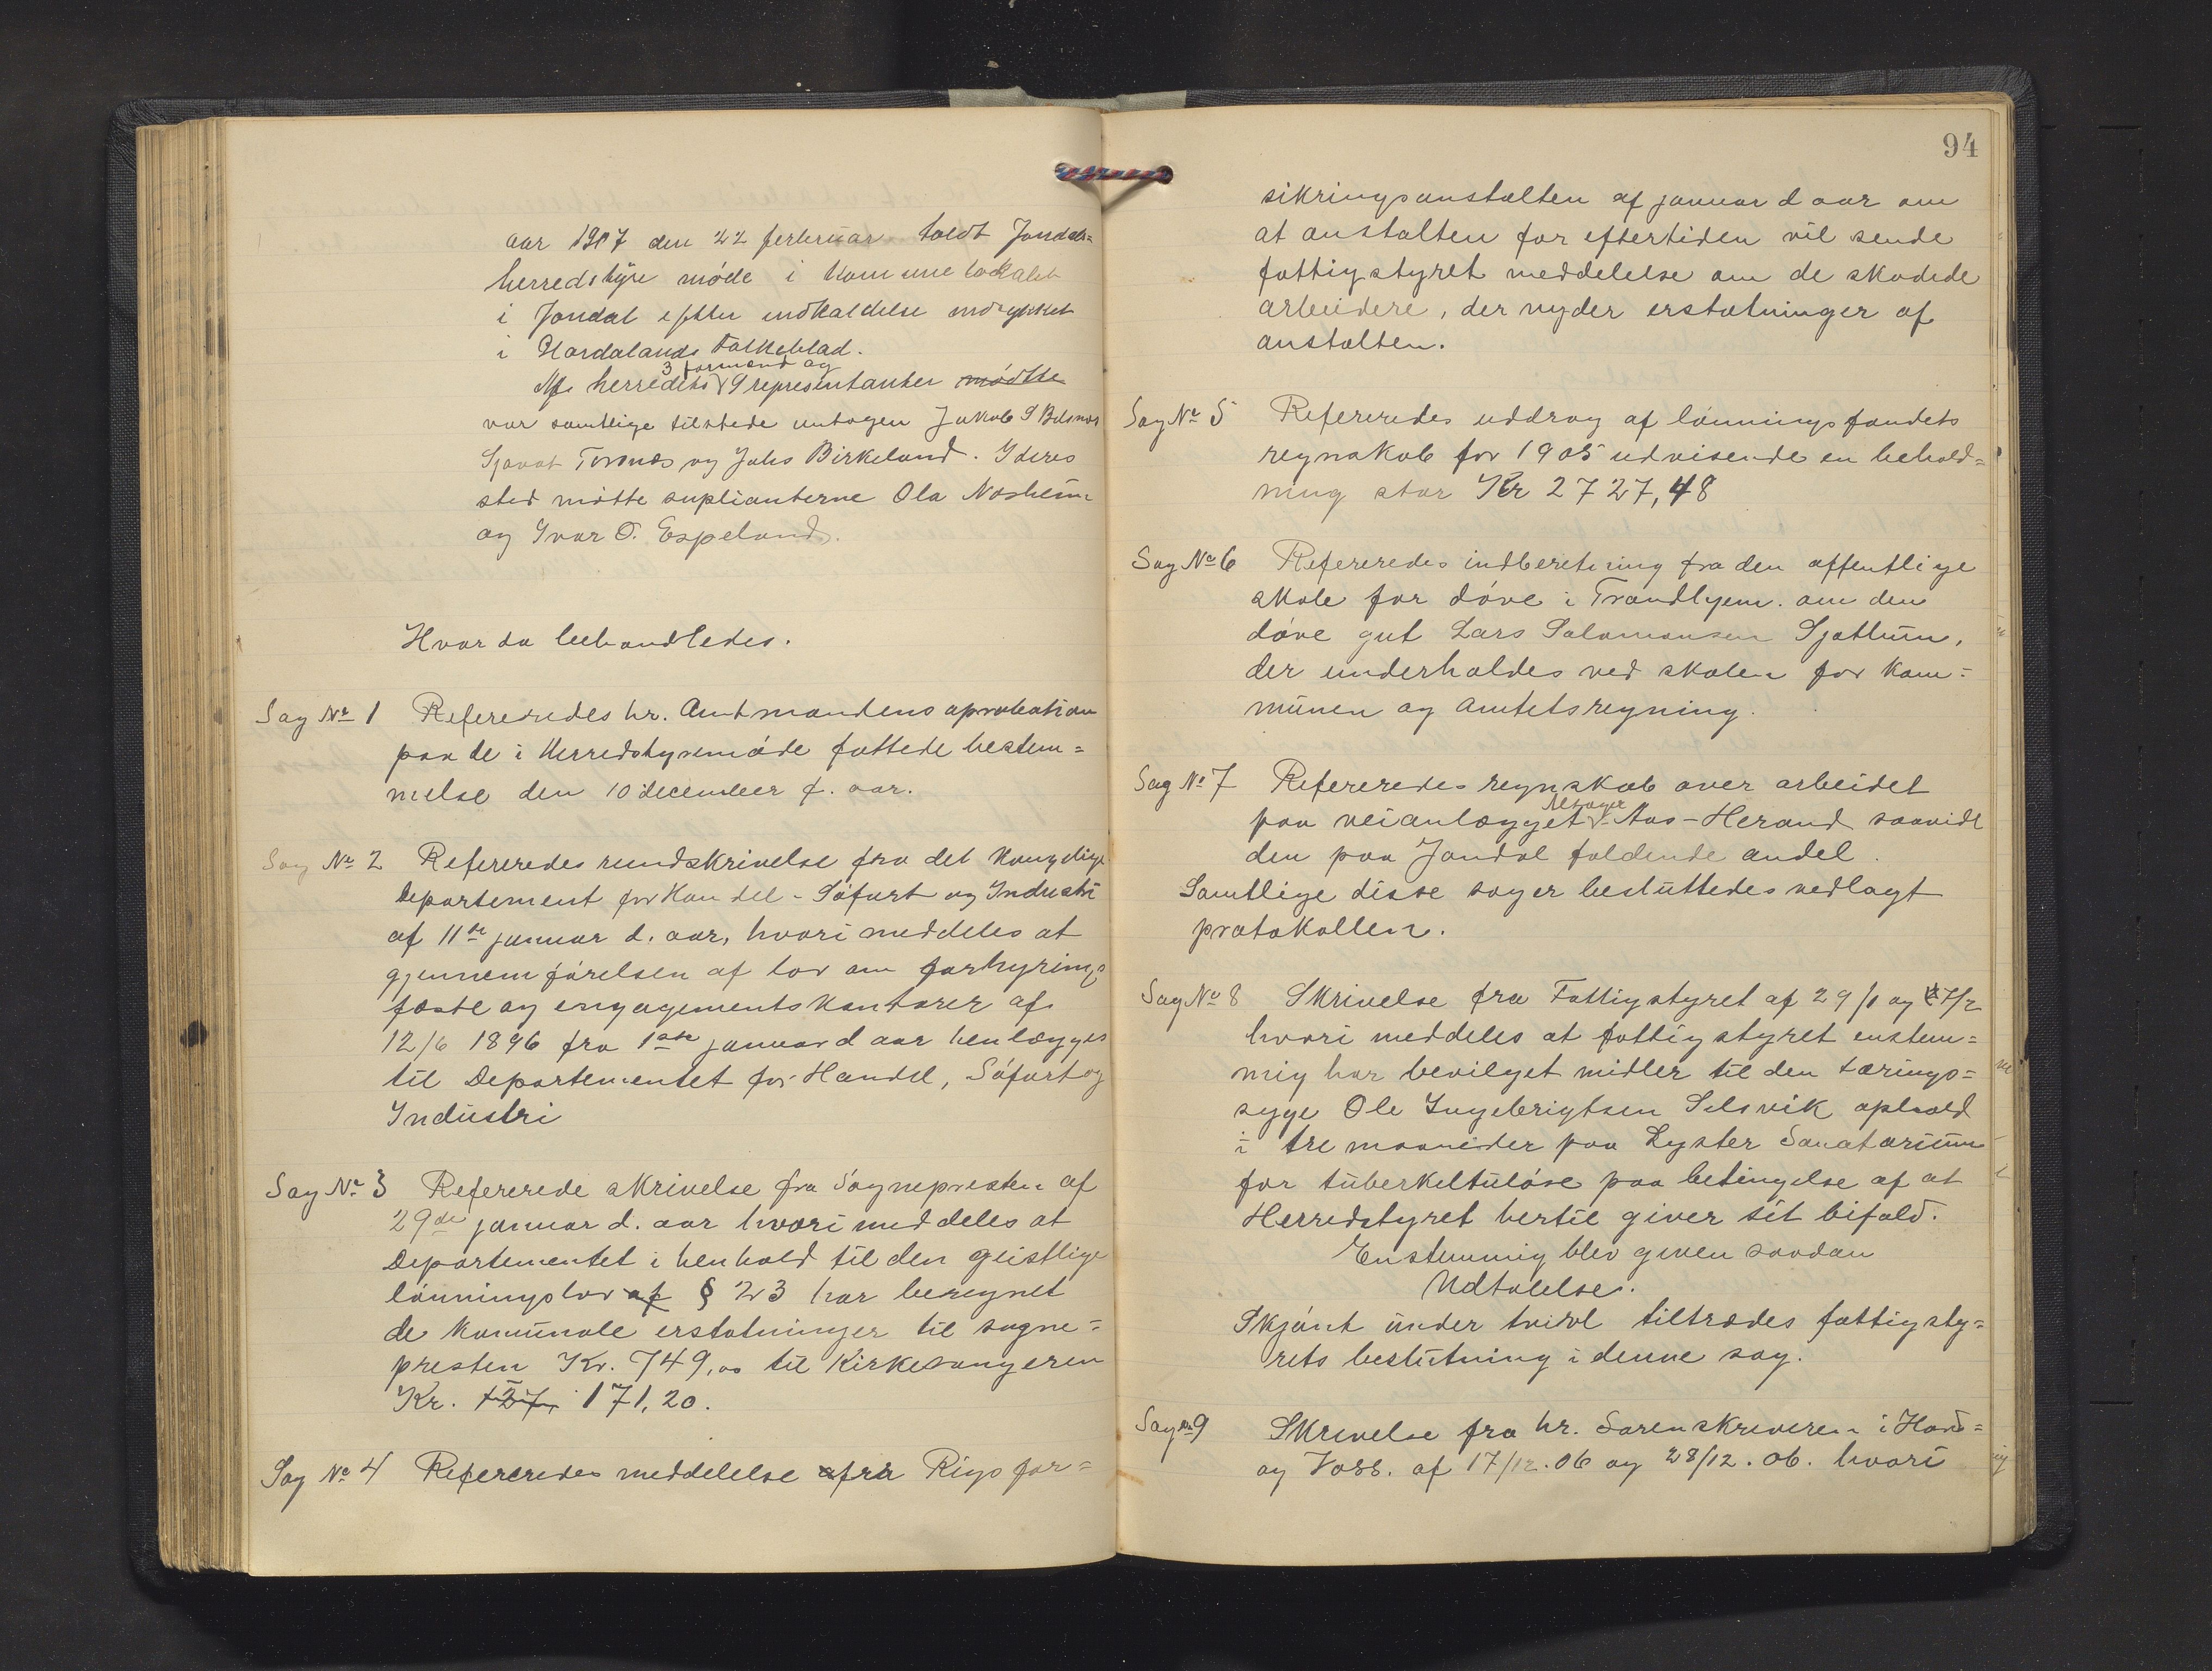 aar 1907 den 22 ferbruar holdt Jondals=
herredstyre møde i Kommunelokalet
i Jondal efter indkaldelse indrykket
i Hordalands Folkeblad.
3 formænd og
Af herredets 9 representanter mødte
var samtlige tilstede untagen Jakob S
Sjovat Tornæs og Johs Birkeland. I deres
sted møtte suplianterne Ola Næsheim
og Ivar O. Espeland.
Hvor da behandledes.
Sag No 1 Refereredes hr. Amtmandens aprobation
paa de i Herredstyremøde fattede bestem=
melse den 10 december f. aar.
Sag No 2 Refereredes rundskrivelse fra det Kongelige
Departement for Handel - Søfart og Industri
af 11te januar d. aar, hvori meddeles at
gjennemførelsen af lov om forhyrings
fæste og engagementskontorer af
12/6 1896 fra 1ste januar d aar henlægges
til Departementet for Handel, Søfart og
Industri
Sag No 3 Refererede skrivelse fra Sognepresten af
29de januar d. aar hvori meddeles at
Departementet i henhold til den geistlige
lønningslov af § 23 har beregnet
de komunale erstatninger til sogne=
presten Kr. 749,00 til Kirkesangeren
Kr. 127, 171,20.
Sag No 4 Refereredes meddelelse afra Rigsfor=
94
sikringsanstalten af januar d aar om
at anstalten for eftertiden vil sende
fattigstyret meddelelse om de skadede
arbeidere, der nyder erstatninger af
anstalten.
Sag No 5 Refereredes uddrag af lønningsfondets
regnskab for 1905 udvisende en behold=
ning stor Kr 2727,48
Sag No 6 Refereredes indberetning fra den offentlige
skole for døve i Trondhjem. om den
døve gut Lars Salamonsen Sjøthun,
der underholdes ved skolen for kom=
munen og amtets regning.
Sag No 7 Refereredes regnskab over arbeidet
paa veianlægget Aas-Herand saavidt
den paa Jondal faldende andel.
Samtlige disse sager besluttedes vedlagt
protokollen.
Sag No 8 Skrivelse fra Fattigstyret af 29/1 og 7/2
hvori meddeles at fattigstyret enstem=
mig har bevilget midler til den tærings=
syge Ole Ingebrigtsen Selsvik ophold
i tre maaneder paa Lyster Sanatorium
for tuberkeltuløse paa betingelse af at
Herredstyret hertil giver sit bifald.
Enstemmig blev given saadan
Udtalelse.
Skjønt under tvivl tiltrædes fattigsty=
rets beslutning i denne sag.
Sag No 9 Skrivelse fra hr. Sorenskriveren i Hard=
og Voss. af 17/12.06 og 28/12.06. hvori